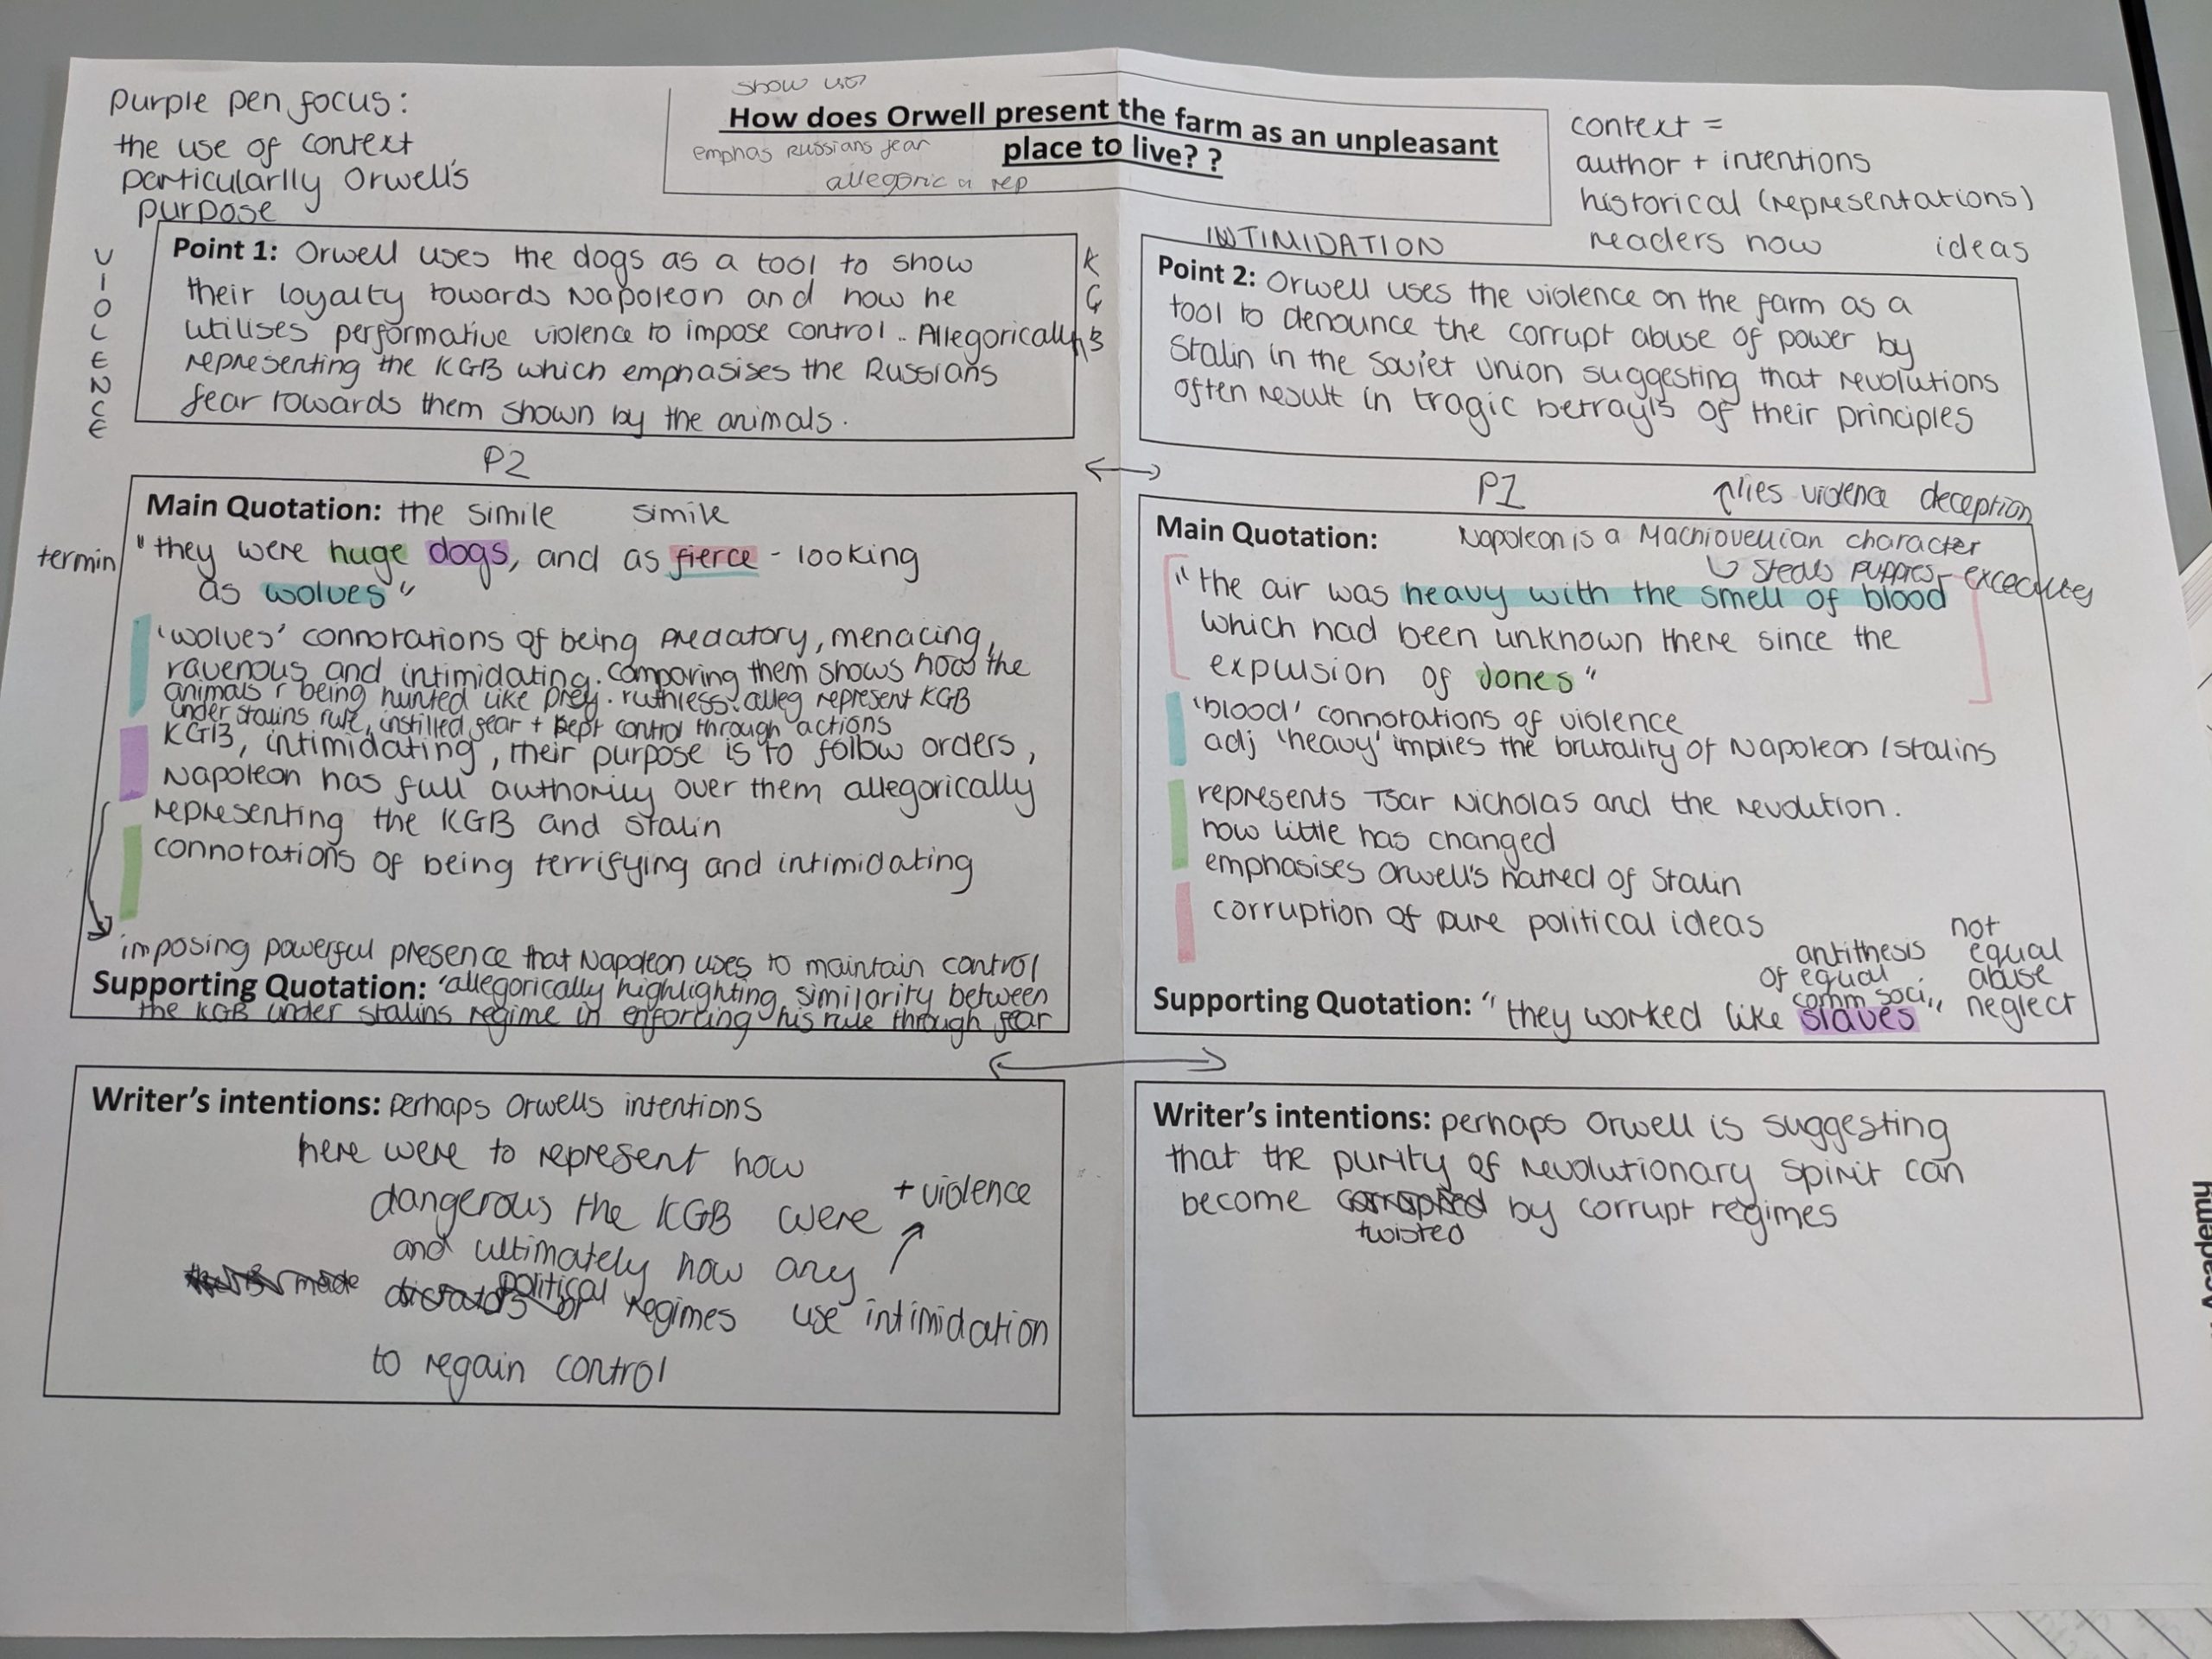 purple pen focus:
the use of context
particularlly Orwell's
purpose
show us
How does Orwell present the farm as an unpleasant
emphas Russians fear
place to live? ?
allegoric rep
context =
author + intentions
historical (representations)
readers now ideas
VIOLENCE
Point 1: Orwell uses the dogs as a tool to show
their loyalty towards Napoleon and how he
utilises performative violence to impose control.. Allegorically
representing the KGB which emphasises the Russians
fear towards them shown by the animals.
KGB
P2
Main Quotation: the simile simile
termin
"they were huge dogs, and as fierce - looking
as wolves"
'wolves' connotations of being predatory, menacing,
ravenous and intimidating. comparing them shows how the
animals r being hunted like prey. ruthless. alleg represent KGB
under stalins rule, instilled fear + kept control through actions
KGB, intimidating, their purpose is to follow orders,
Napoleon has full authority over them allegorically
representing the KGB and Stalin
connotations of being terrifying and intimidating
imposing powerful presence that Napoleon uses to maintain control
Supporting Quotation: 'allegorically highlighting similarity between
the KGB under stalins regime in enforcing his rule through fear
Writer's intentions: perhaps Orwells intentions
here were to represent how
dangerous the KGB were + violence
and ultimately how any
made political regimes use intimidation
to regain control
INTIMIDATION
Point 2: Orwell uses the violence on the farm as a
tool to denounce the corrupt abuse of power by
Stalin in the Soviet Union suggesting that revolutions
often result in tragic betrayls of their principles
P1
lies violence deception
Main Quotation: Napoleon is a Machiovellian character
steals puppies executes
"the air was heavy with the smell of blood
which had been unknown there since the
expulsion of Jones"
'blood' connotations of violence
adj 'heavy' implies the brutality of Napoleon / stalins
represents Tsar Nicholas and the revolution.
how little has changed
emphasises Orwell's hatred of Stalin
corruption of pure political ideas
antithesis
of equal
comm soci
not
equal
abuse
neglect
Supporting Quotation: "they worked like slaves"
Writer's intentions: perhaps Orwell is suggesting
that the purity of revolutionary spirit can
become corrupted by corrupt regimes
twisted
Academy